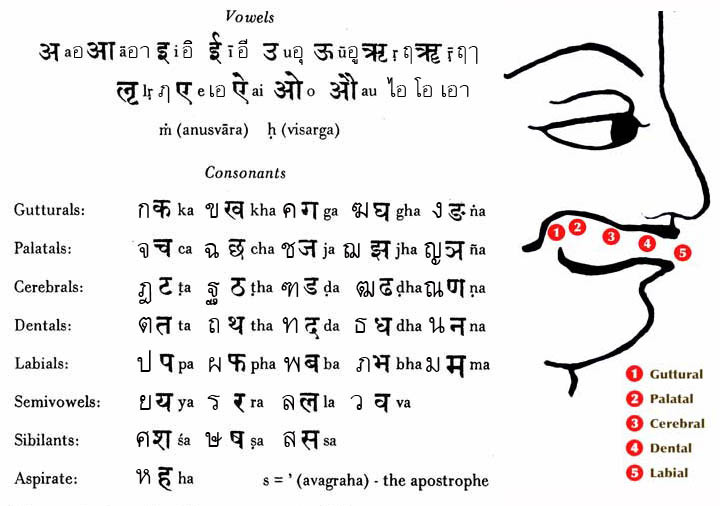 Vowels
अ a อ आ ā อา इ i อิ ई ī อี उ u อุ ऊ ū อู ऋ ṛ ฤ ॠ ṝ ฤา
ऌ lṛ ฦ ए e เอ ऐ ai ओ o औ au ไอ โอ เอา
ṁ (anusvāra) ḥ (visarga)
Consonants
Gutturals: ก क ka ข ख kha ค ग ga ฆ घ gha ง ङ ṅa
Palatals: จ च ca ฉ छ cha ช ज ja ฌ झ jha ญ ञ ña
Cerebrals: ฏ ट ṭa ฐ ठ ṭha ฑ ड ḍa ฒ ढ ḍha ณ ण ṇa
Dentals: ต त ta ถ थ tha ท द da ธ ध dha น न na
Labials: ป प pa ผ फ pha พ ब ba ภ भ bha ม म ma
Semivowels: ย य ya ร र ra ล ल la ว व va
Sibilants: ศ श śa ษ ष ṣa ส स sa
Aspirate: ห ह ha s = ' (avagraha) - the apostrophe
1 2 3 4 5
1 Guttural
2 Palatal
3 Cerebral
4 Dental
5 Labial